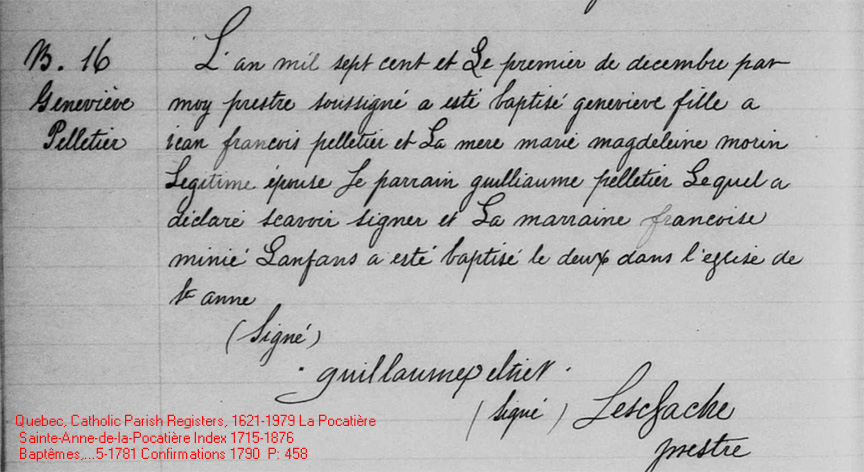 B. 16
Geneviève
Pelletier
L'an mil sept cent et Le premier de decembre par
moy prestre soussigné a esté baptisé genevieve fille a
jean francois pelletier et La mere marie magdeleine morin
Legitime épouse Le parrain guilliaume pelletier Lequel a
déclaré scavoir signer et La marraine francoise
minié Lanfans a esté baptisé le deux dans l'eglise de
Ste anne
(Signé)
guillaume peltier.
(Signé)
prestre
Quebec, Catholic Parish Registers, 1621-1979 La Pocatière
Sainte-Anne-de-la-Pocatière Index 1715-1876
Baptêmes,...5-1781 Confirmations 1790 P: 458